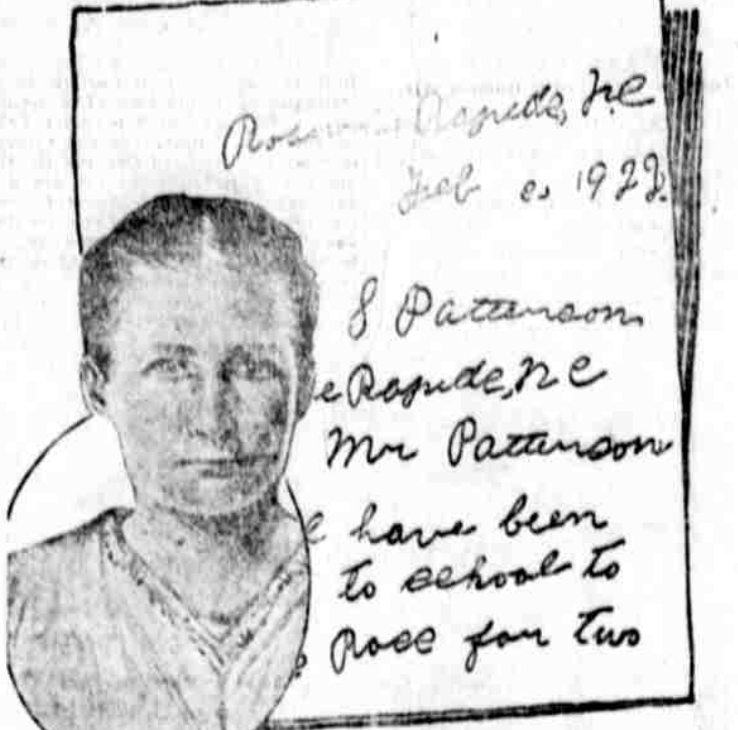 Rapids, N.C
Feb 1922.
S Patterson
e Rapids, N C
Mr Patterson
have been
to school to
Rose for two